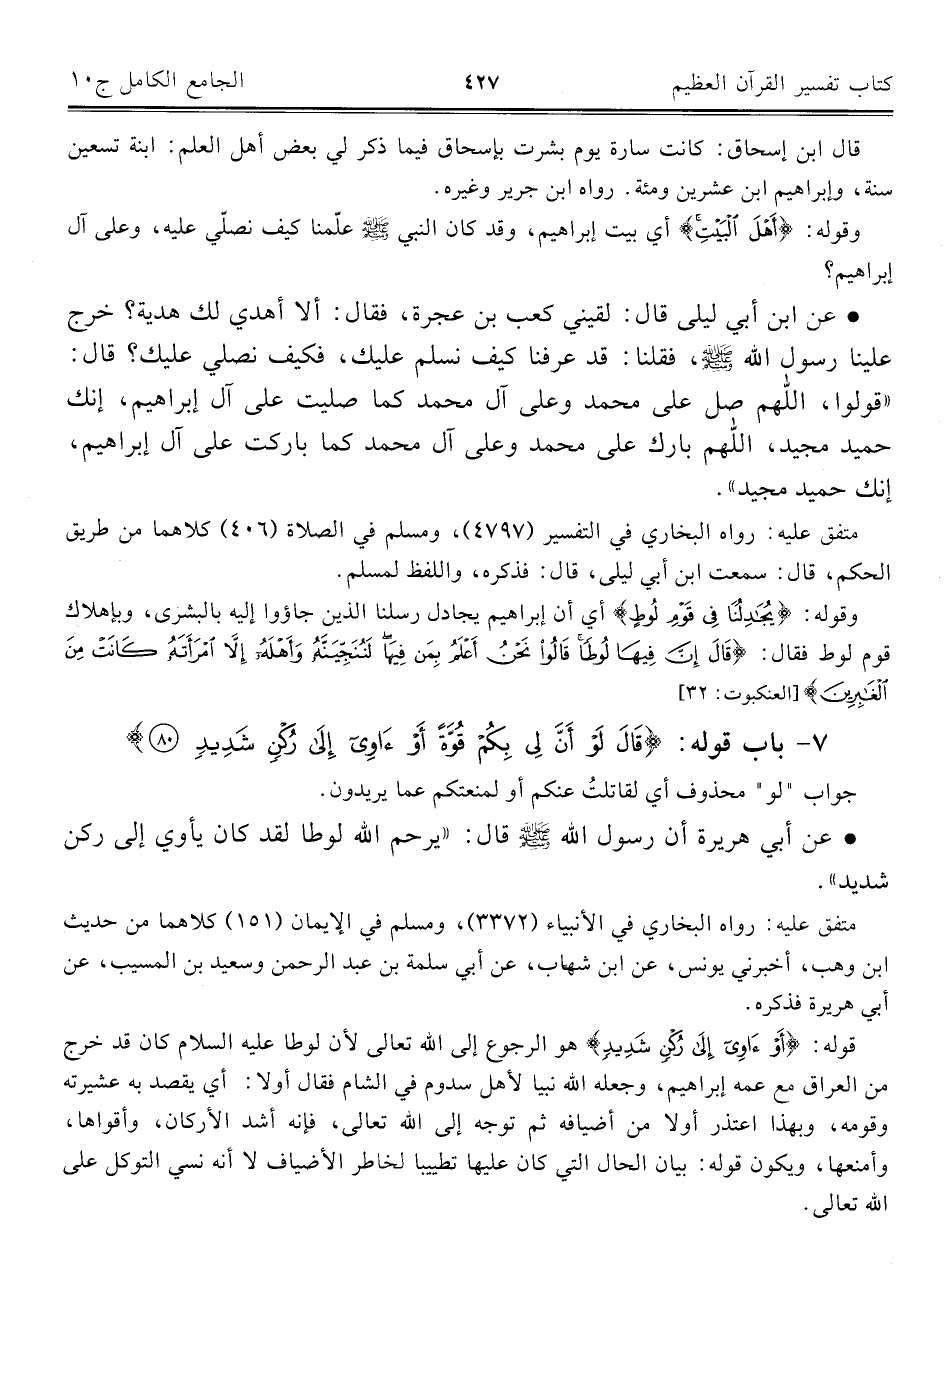 كتاب تفسير القرآن العظيم ٤٢٧ الجامع الكامل ج١٠
قال ابن إسحاق: كانت سارة يوم بشرت بإسحاق فيما ذكر لي بعض أهل العلم: ابنة تسعين
سنة، وإبراهيم ابن عشرين ومئة. رواه ابن جرير وغيره.
وقوله: ﴿أَهْلَ ٱلْبَيْتِۚ﴾ أي بيت إبراهيم، وقد كان النبي ﷺ علّمنا كيف نصلّي عليه، وعلى آل
إبراهيم؟
• عن ابن أبي ليلى قال: لقيني كعب بن عجرة، فقال: ألا أهدي لك هدية؟ خرج
علينا رسول الله ﷺ، فقلنا: قد عرفنا كيف نسلم عليك، فكيف نصلي عليك؟ قال:
«قولوا، اللّهم صل على محمد وعلى آل محمد كما صليت على آل إبراهيم، إنك
حميد مجيد، اللّهم بارك على محمد وعلى آل محمد كما باركت على آل إبراهيم،
إنك حميد مجيد».
متفق عليه: رواه البخاري في التفسير (٤٧٩٧)، ومسلم في الصلاة (٤٠٦) كلاهما من طريق
الحكم، قال: سمعت ابن أبي ليلى، قال: فذكره، واللفظ لمسلم.
وقوله: ﴿يُجَٰدِلُنَا فِى قَوْمِ لُوطٍ﴾ أي أن إبراهيم يجادل رسلنا الذين جاؤوا إليه بالبشرى، وبإهلاك
قوم لوط فقال: ﴿قَالَ إِنَّ فِيهَا لُوطًاۚ قَالُوا۟ نَحْنُ أَعْلَمُ بِمَن فِيهَاۖ لَنُنَجِّيَنَّهُۥ وَأَهْلَهُۥٓ إِلَّا ٱمْرَأَتَهُۥ كَانَتْ مِنَ
ٱلْغَٰبِرِينَ﴾ [العنكبوت: ٣٢]
٧- باب قوله: ﴿قَالَ لَوْ أَنَّ لِى بِكُمْ قُوَّةً أَوْ ءَاوِىٓ إِلَىٰ رُكْنٍ شَدِيدٍ ٨٠﴾
جواب "لو" محذوف أي لقاتلتُ عنكم أو لمنعتكم عما يريدون.
• عن أبي هريرة أن رسول الله ﷺ قال: «يرحم الله لوطا لقد كان يأوي إلى ركن
شديد».
متفق عليه: رواه البخاري في الأنبياء (٣٣٧٢)، ومسلم في الإيمان (١٥١) كلاهما من حديث
ابن وهب، أخبرني يونس، عن ابن شهاب، عن أبي سلمة بن عبد الرحمن وسعيد بن المسيب، عن
أبي هريرة فذكره.
قوله: ﴿أَوْ ءَاوِىٓ إِلَىٰ رُكْنٍ شَدِيدٍ﴾ هو الرجوع إلى الله تعالى لأن لوطا عليه السلام كان قد خرج
من العراق مع عمه إبراهيم، وجعله الله نبيا لأهل سدوم في الشام فقال أولا: أي يقصد به عشيرته
وقومه، وبهذا اعتذر أولا من أضيافه ثم توجه إلى الله تعالى، فإنه أشد الأركان، وأقواها،
وأمنعها، ويكون قوله: بيان الحال التي كان عليها تطييبا لخاطر الأضياف لا أنه نسي التوكل على
الله تعالى.